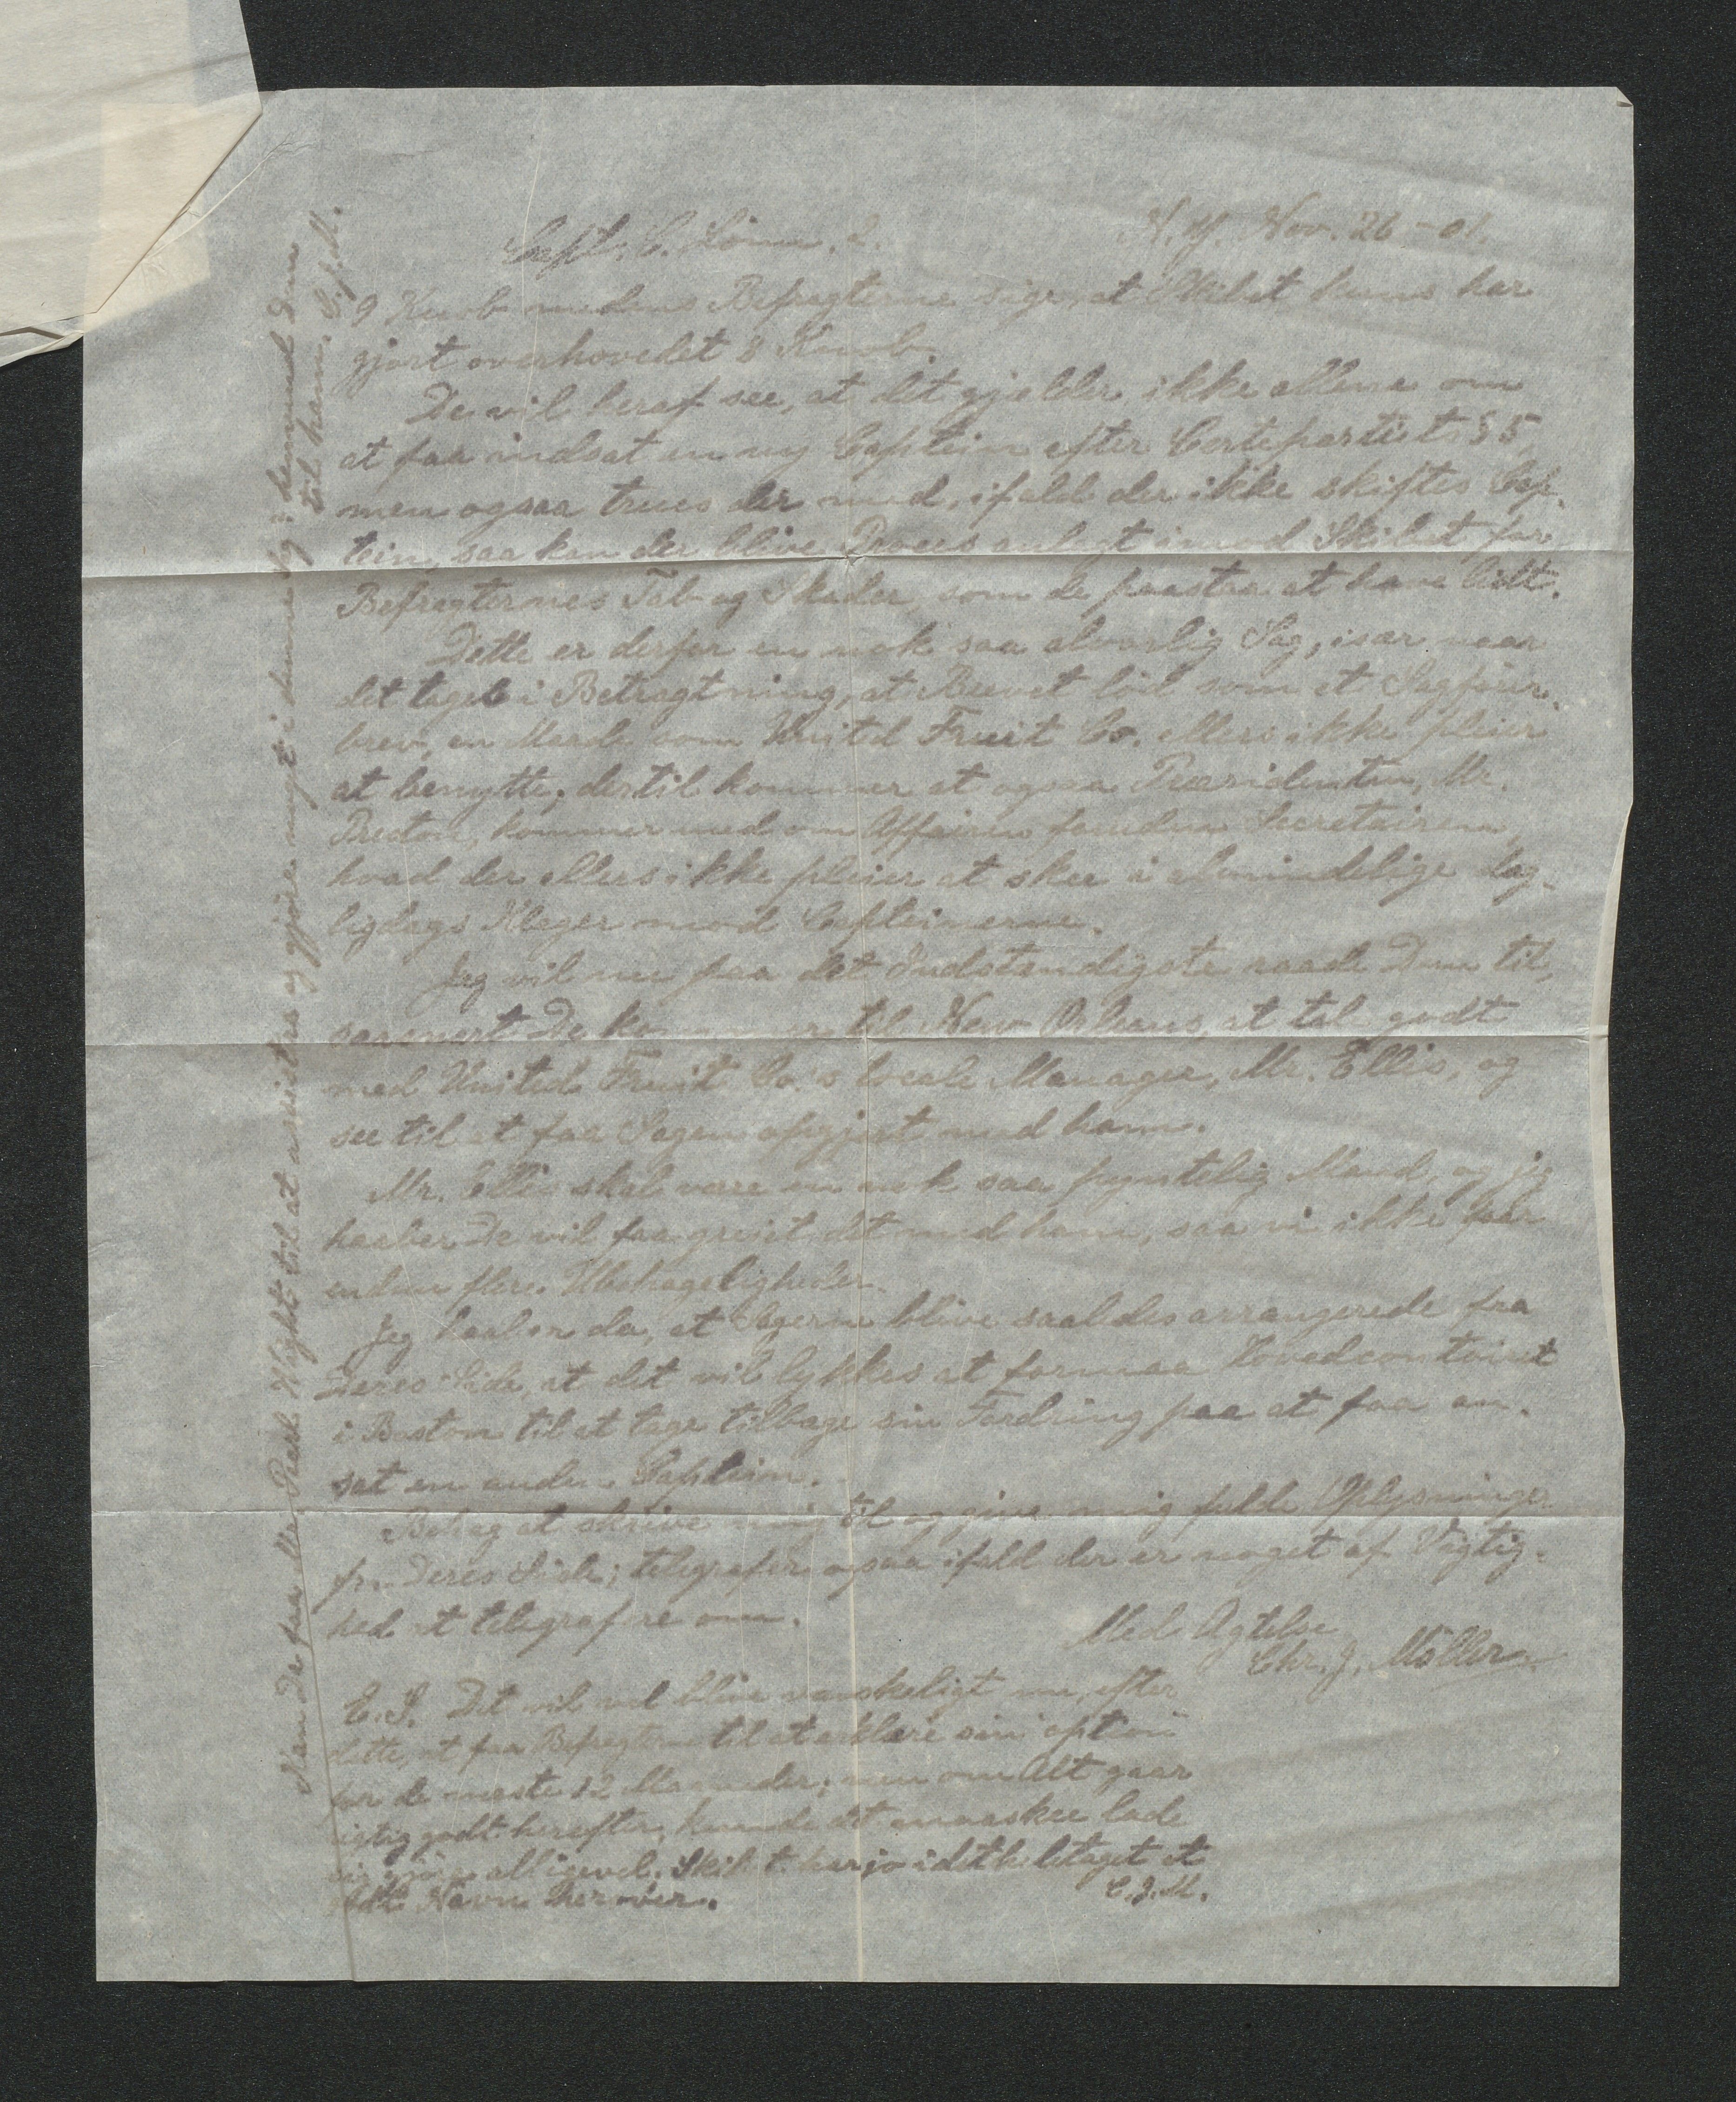 Capt. C. Lömm. 2. N. Y. Nov. 26 - 01.
9 Knob medens Befragterne siger, at Skibet kuns har
gjort overhovedet 8 Knob.
De vil heraf see, at det gjelder ikke allene om
at faa indsat en ny Captein efter Certepartiets § 5,
men ogsaa trues der med, ifald der ikke skiftes Cap-
tein, saa kan der blive Proces anlagt imod Skibet for
Befragternes Tab og Skader, som de paastaa at have lidt.
Dette er derfor en nok saa alvorlig Sag, især naar
det toges i Betragtning, at Brevet löd som et Sagförer-
brev, en Maade som United Fruit Co. ellers ikke pleier
at benytte; dertil kommer at ogsaa Præsidenten, Mr.
Preston, kommer med om Affairen foruden Secretairen,
hvad der ellers ikke pleier at skee i almindelige dag-
ligdags Klager mod Capteinerne.
Jeg vil nu paa det Indstendigste raade Dem til,
saasnart De kommer til New Orleans, at tale godt
med United Fruit Co.'s locale Manager, Mr. Ellis, og
see til at faa Sagen opgjort med ham.
Mr. Ellis skal være en nok saa pyntelig Mand, og jeg
haaber De vil faa greiet det med ham, saa vi ikke faar
endnu flere Ubehageligheder.
Jeg haaber da, at Sagerne blive saaledes arrangerede fra
Deres Side, at det vil lykkes at formaa Hovedcontoiret
i Boston til at tage tilbage sin Fordring paa at faa an-
sat en anden Captein.
Behag at skrive mig til og give mig fulde Oplysninger
fra Deres Side; telegrafer ogsaa ifald der er noget af Vigtig-
hed at telegrafere om.
Med Agtelse
Chr. J. Möller.
E. S. Det vil vel blive vanskeligt nu, efter
dette, at faa Befragterne til at erklære sin option
for de næste 12 Maaneder; men om Alt gaar
rigtig godt herefter, kunde det maaskee lade
sig gjöre alligevel. Skibet har jo i det hele taget et
godt Navn herover. C. J. M.
Kan De faa Mr. Pratt Wight til at assistere og gjöre nogt i denne Sag? hermed Dem
til ham. C. J. M.